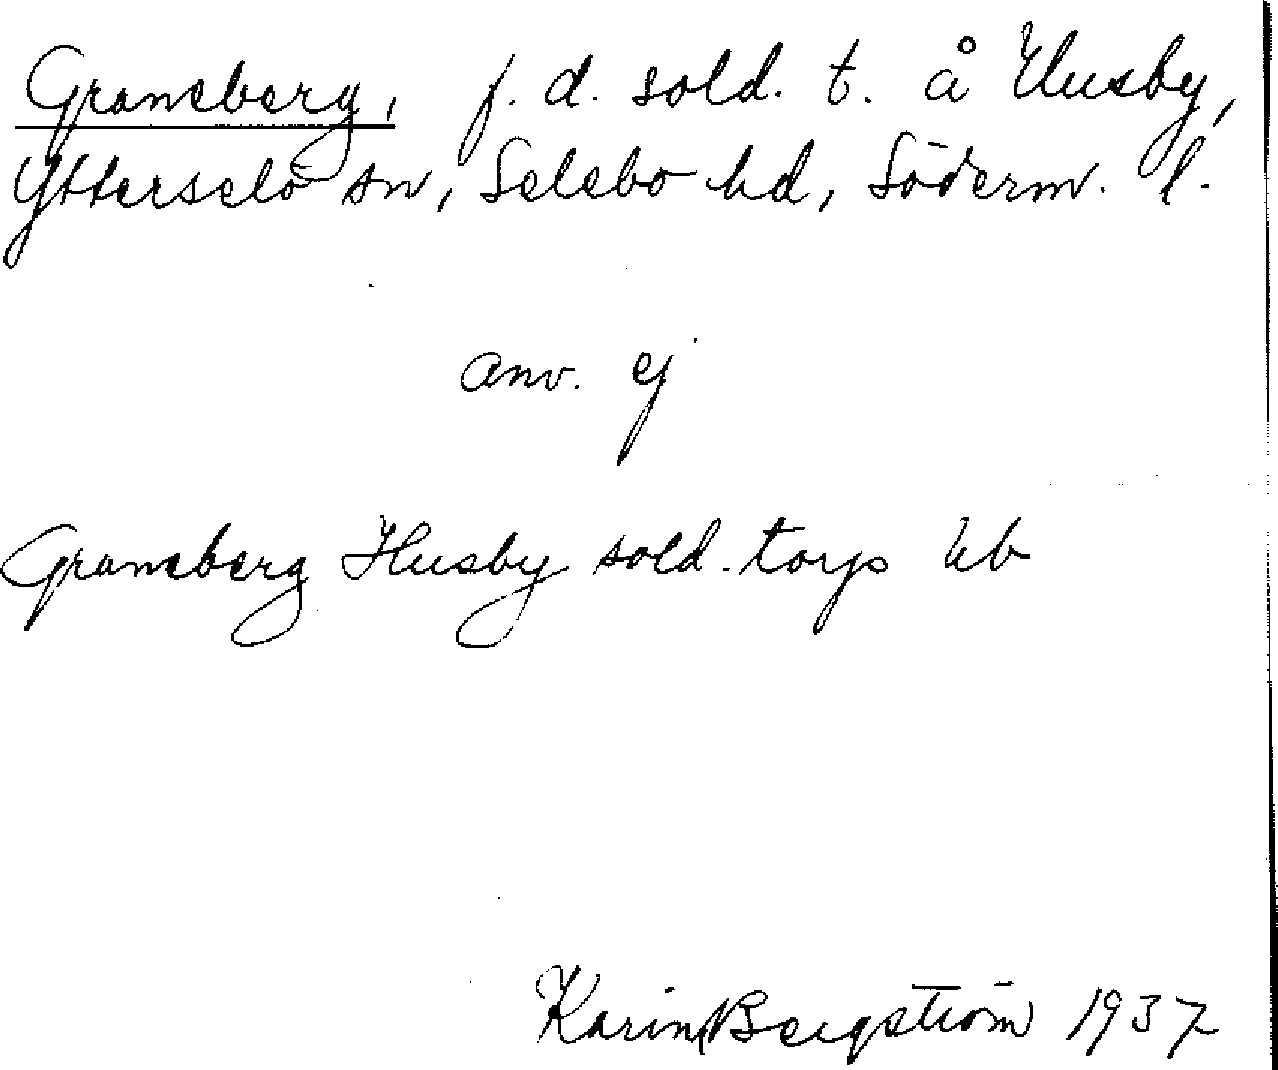 Graneberg, f. d. sold. t. å Husby,
Ytterselö sn, Selebo hd, Söderm. l.
anv. ej
Graneberg Husby sold. torp Ub
Karin Bergström 1937